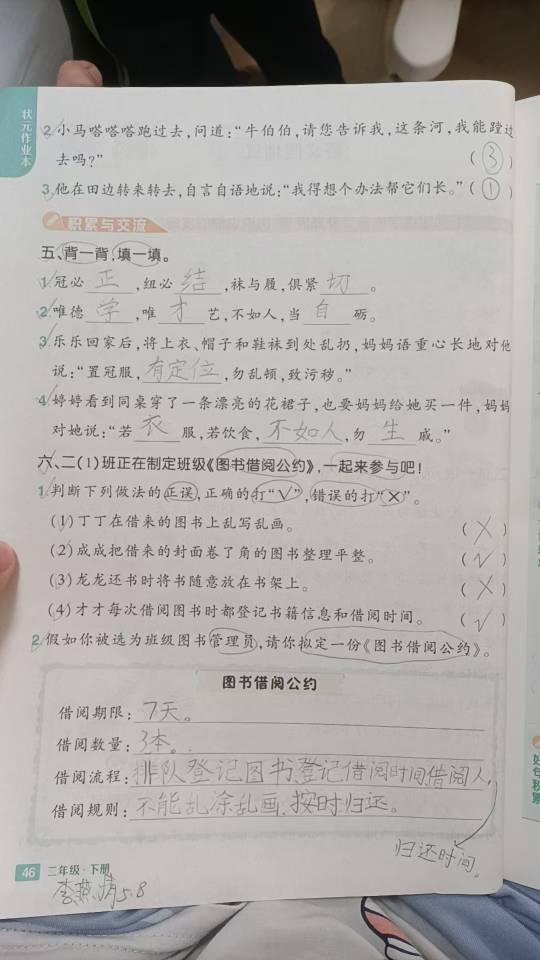 状元作业本
2.小马嗒嗒嗒跑过去,问道:“牛伯伯,请您告诉我,这条河,我能蹚过
去吗?” (③)
3.他在田边转来转去,自言自语地说:“我得想个办法帮它们长。”(①)
积累与交流
五、背一背,填一填。
1.冠必正,纽必结,袜与履,俱紧切。
2.唯德学,唯才艺,不如人,当自砺。
3.乐乐回家后,将上衣、帽子和鞋袜到处乱扔,妈妈语重心长地对他
说:“置冠服,有定位,勿乱顿,致污秽。”
4.婷婷看到同桌穿了一条漂亮的花裙子,也要妈妈给她买一件,妈妈
对她说:“若衣服,若饮食,不如人,勿生戚。”
六、二(1)班正在制定班级《图书借阅公约》,一起来参与吧!
1.判断下列做法的正误,正确的打“√”,错误的打“×”。
(1)丁丁在借来的图书上乱写乱画。 (×)
(2)成成把借来的封面卷了角的图书整理平整。 (√)
(3)龙龙还书时将书随意放在书架上。 (×)
(4)才才每次借阅图书时都登记书籍信息和借阅时间。 (√)
2.假如你被选为班级图书管理员,请你拟定一份《图书借阅公约》。
图书借阅公约
借阅期限:7天。
借阅数量:3本。
借阅流程:排队登记图书登记借阅时间借阅人,
借阅规则:不能乱涂乱画、按时归还。
归还时间。
46 二年级·下册
5.8
好句积累